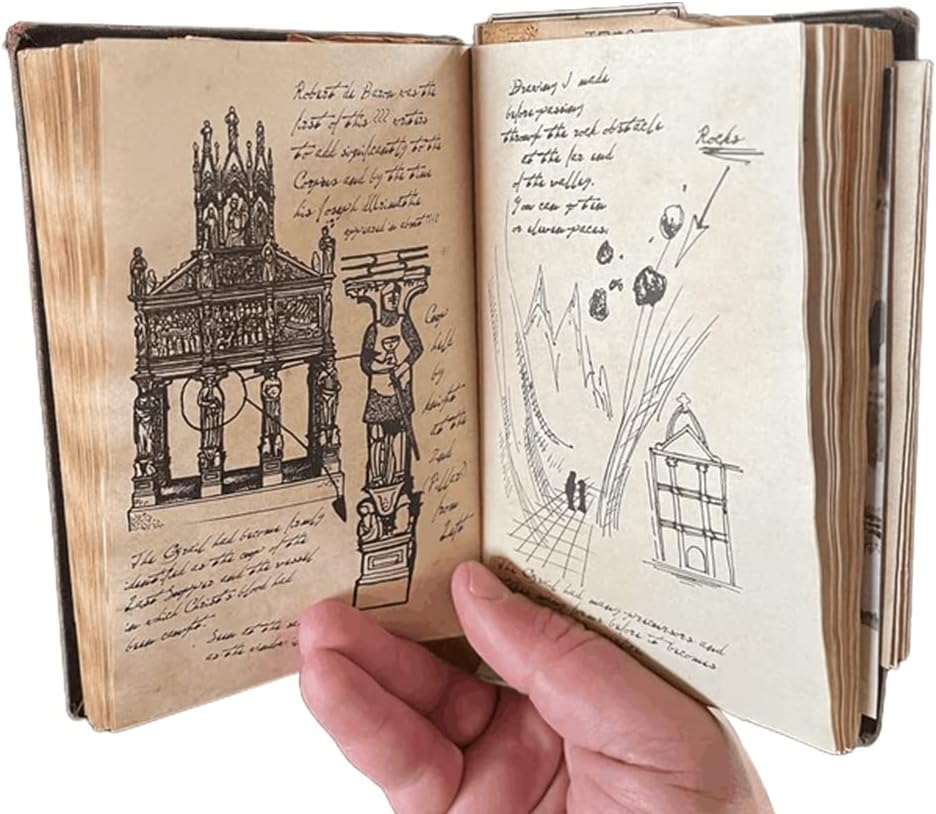 Robert de Boron was the
first of this ??? writers
to add significantly to the
Corpus and by the time
his Joseph
appeared in about
Cup
held
by
knight
at the
2nd
Pillar
from
Left
The Grail had become firmly
identified as the cup of the
Last Supper and the vessel
in which Christ's blood had
been caught.
Seen at the
as the
Drawing I made
before passing
through the rock obstacle
at the far end
of the valley.
You can
or eleven paces.
Rocks
The Grail had many precursors and
before it becomes